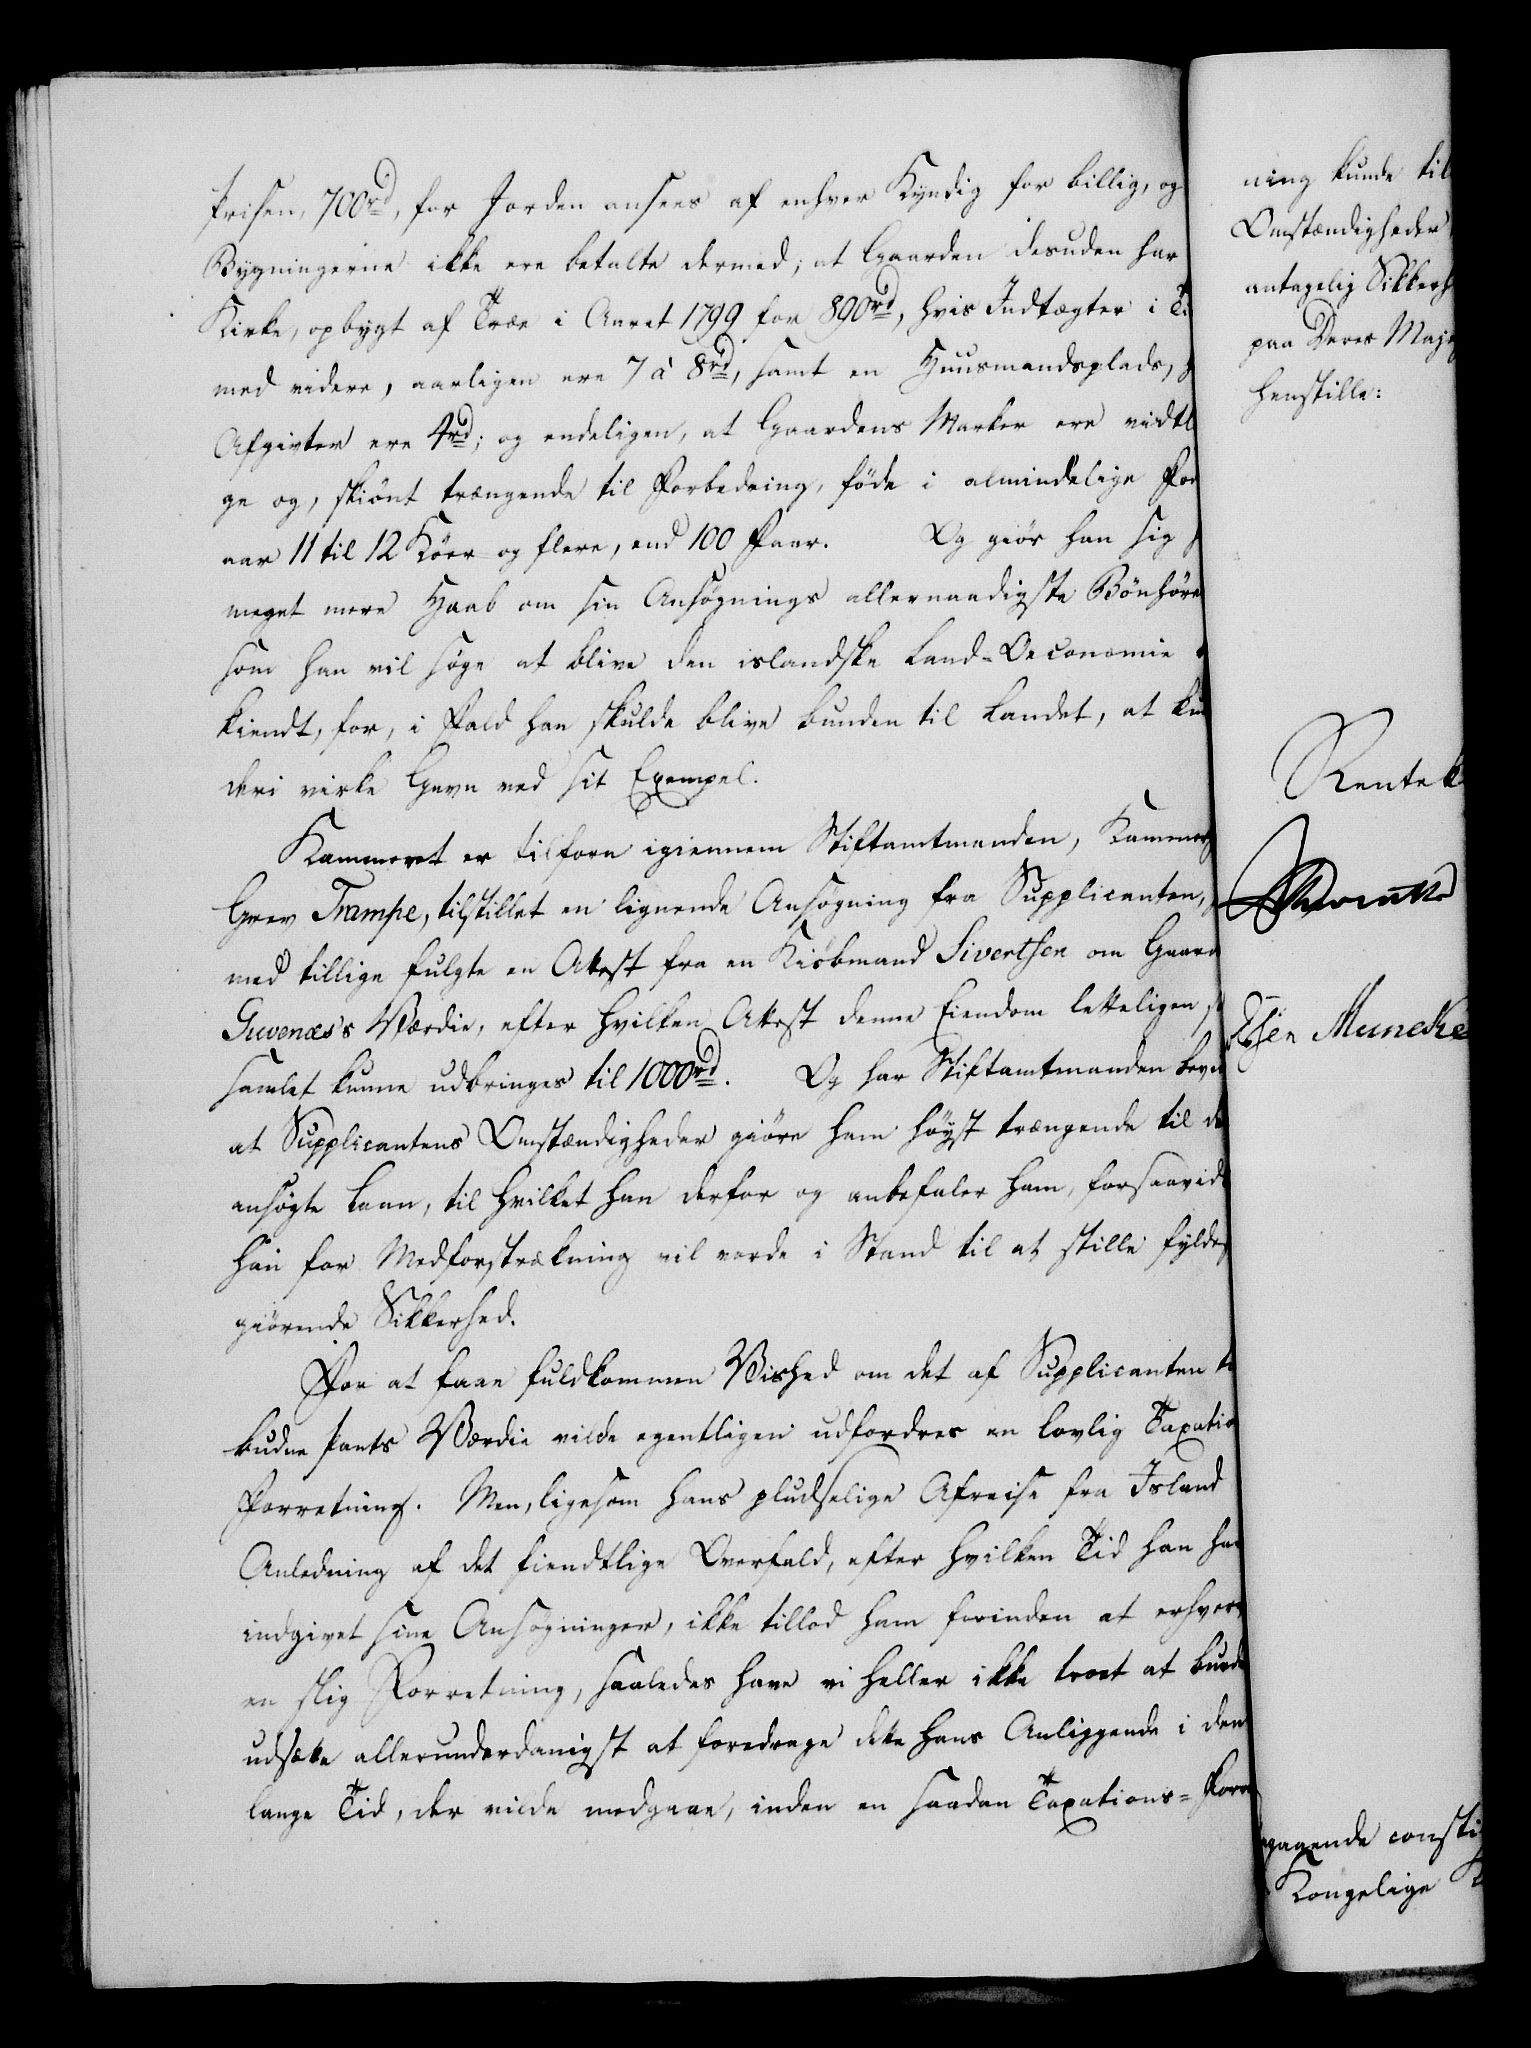 Prisen, 700rd, for Jorden ansees af enhver Kyndig for billig, og
Bygningerne ikke ere betalte dermed; at Gaarden desuden har
Kirke, opbygt af Træe i Aaret 1799 for 890rd, hvis Indtægter i Ti
med videre, aarligen ere 7 à 8rd, samt en Huusmandsplads,
Afgivter ere 4rd; og endeligen, at Gaardens Marker ere vidtl
ge og, skiönt trængende til Forbedring, föde i almindelige For
aar 11 til 12 Köer og flere, end 100 Faar. Og giör han sig
meget mere Haab om sin Ansøgnings allernaadigste Bönhöre
som han vil søge at blive den islandske Land-Oeconomie
kiendt, for, i Fald han skulde blive bunden til Landet, at kun
deri virke Gavn ved sit Exempel.
Kammeret er tilforn igiennem Stiftamtmanden, Kammerh
Grev Trampe, tilstillet en lignende Ansøgning fra Supplicanten,
med tillige fulgte en Attest fra en Kiöbmand Sivertsen om Gaard
Guvenæs's Værdie, efter hvilken Attest denne Eiendom letteligen
samlet kunne udbringes til 1000rd. Og har Stiftamtmanden bevi
at Supplicantens Omstændigheder giöre ham höyst trængende til de
ansøgte Laan, til hvilket han derfor og anbefaler ham, forsaavidt
han for Medforstrækning vil vorde i Stand til at stille fyldest
giörende Sikkerhed.
For at faae fuldkommen Vished om det af Supplicanten ti
budne Pants Værdie vilde egentligen udfordres en lovlig Taxatio
Forretning. Men, ligesom hans pludselige Afreise fra Island
Anledning af det fiendtlige Overfald, efter hvilken Tid han har
indgivet sine Ansøgninger, ikke tillod ham forinden at erhverv
en slig Forretning, saaledes have vi heller ikke troet at burde
udsætte allerunderdanigst at foredrage dette hans Anliggende i den
lange Tid, der vilde medgaae, inden en saadan Taxations-Forre
ning kunde til
Omstændigheder
antagelig Sikkerh
paa Deres Maje
henstille:
Rentek
Muncke
gaaende consti
Kongelige K